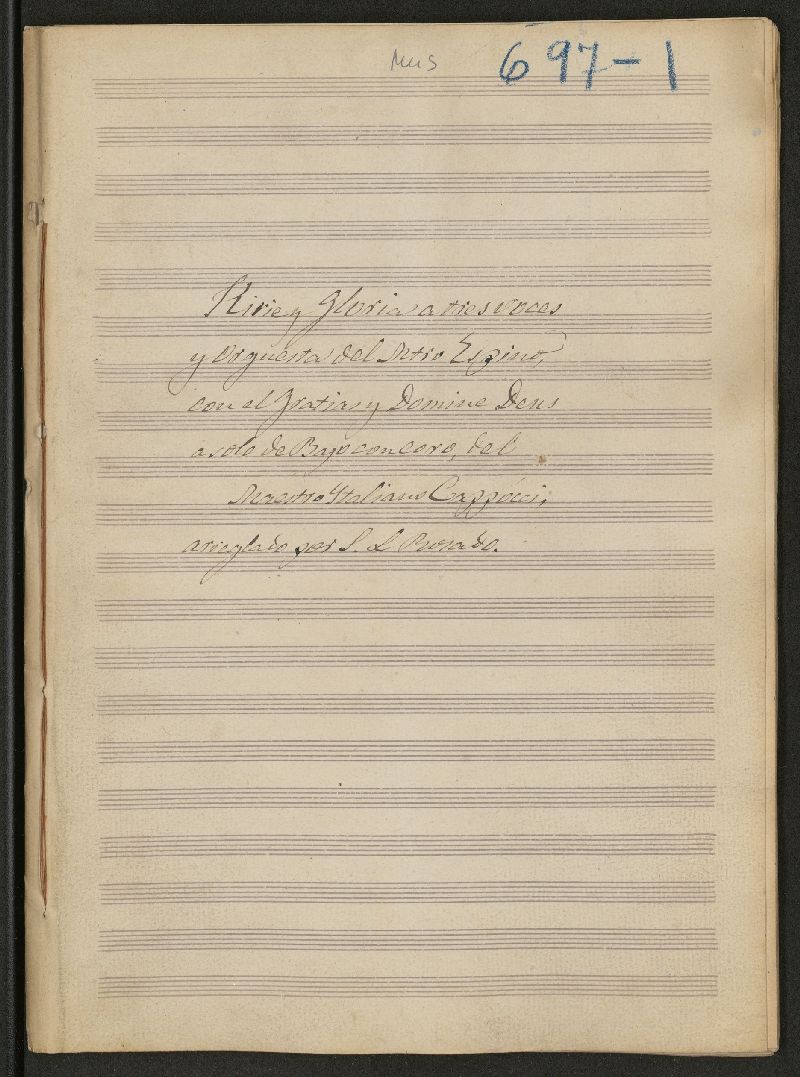 Mus
697-1
Kirie y Gloria a tres voces
y orquesta del Mtro Espino,
con el Gratias y Domine Deus
a solo de Bajo con coro, del
Maestro Italiano Cappócci,
arreglado por S. L. Rosado.